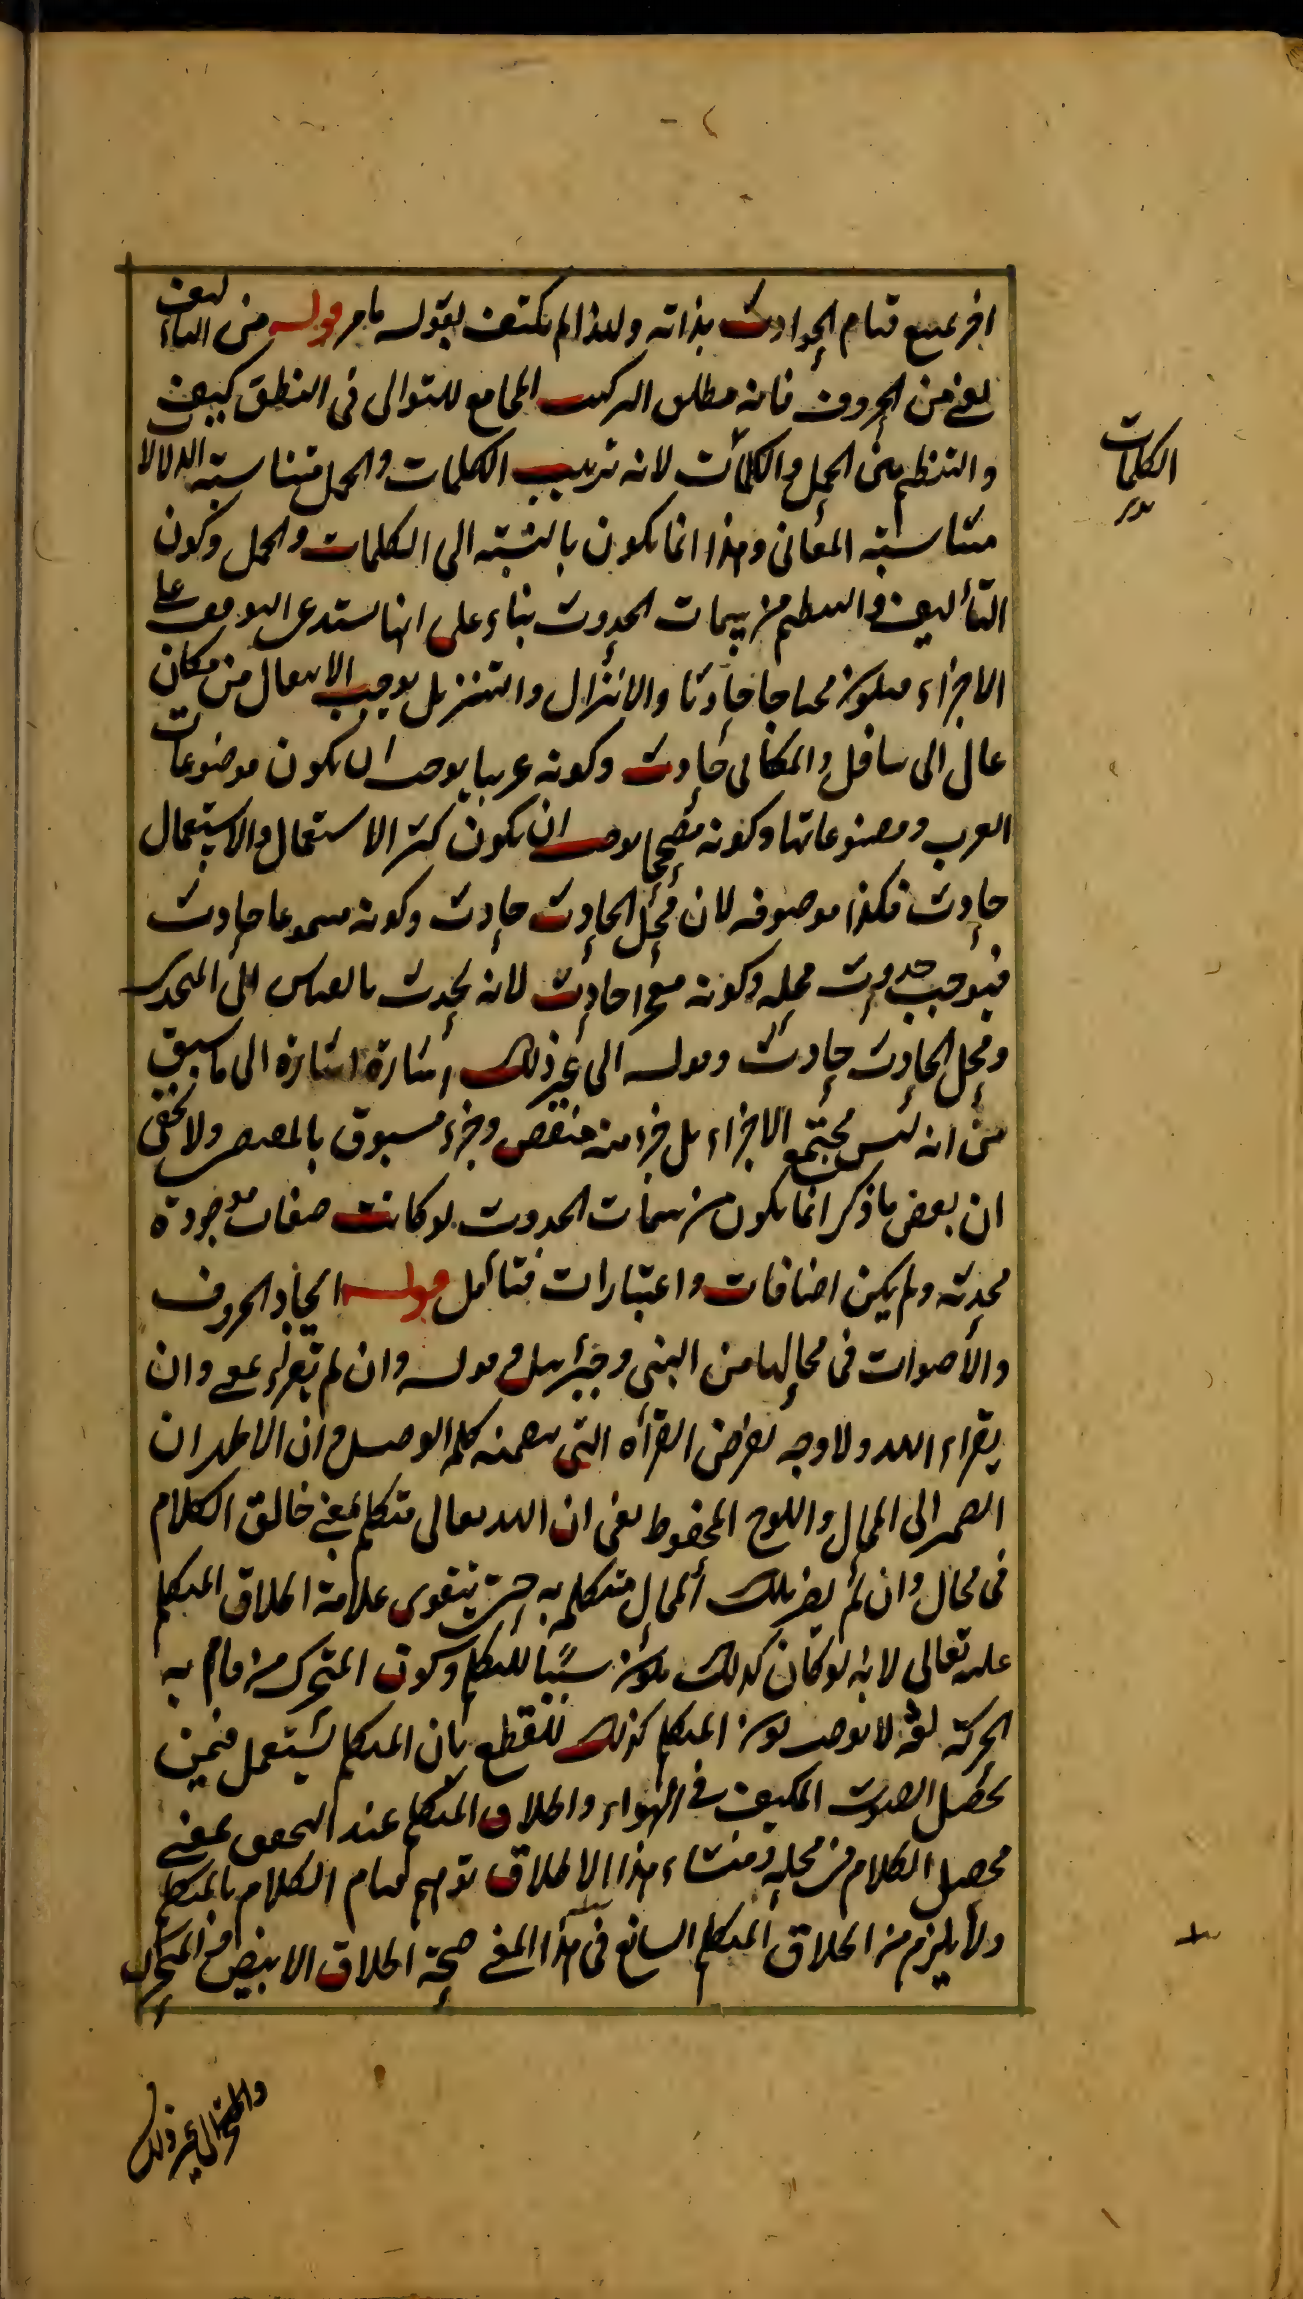 اخر يمنع قيام الحوادث بذاته ولهذا لم يكتف بقوله مامر قوله من التأليف
يعني من الحروف فانه مطلق التركيب الجامع للتوالى فى النطق كيف
والتنظيم من الجمل والكلمات لانه ترتيب الكلمات والجمل متناسبة الدلالا
متناسبة المعانى وهذا انما يكون بالنسبة الى الكلمات والجمل وكون
التأليف والتنظيم من سمات الحدوث بناء على انها يستدعى التوقف على
الاجزاء فيكون محتاجا حادثا والانزال والتنزيل يوجب الانتقال من مكان
عال الى سافل والمكانى حادث وكونه عربيا يوجب ان يكون موضوعات
العرب ومصنوعاتها وكونه فصيحا يوجب ان يكون كثير الاستعمال والاستعمال
حادث فكذا موصوفه لان محل الحادث حادث وكونه مسموعا حادث
فيوجب حدوث محله وكونه معجزا حادث لانه يحدث بالقياس الى المتحدى
ومحل الحادث حادث وقوله الى غير ذلك اشارة اشارة الى ما سبق
من انه ليس مجتمع الاجزاء بل جزء منه منقض وجزء مسبوق بالمنقضى ولا يخفى
ان بعض ما ذكر انما يكون من سمات الحدوث لو كانت صفات موجودة
محدثة ولم يكن اضافات واعتبارات فتأمل قوله ايجاد الحروف
والأصوات فى محالها من النبى وجبرئيل وقوله وان لم يقرء يعنى وان
يقراء الله ولا وجه لفرض القرأة التى يتضمنه كلمة الوصل وان الاظهر ان
الضمير الى المحال واللوح المحفوظ يعنى ان الله تعالى متكلم بمعنى خالق الكلام
فى محال وان لم يصر تلك المحال متكلمه به حتى يتقوى علامة اطلاق المتكلم
عليه تعالى لانه لو كان كذلك يكون سببا للتكلم وكون المتحرك من قام به
الحركة لغة لا يوجب كون المتكلم كذلك للقطع بان المتكلم يستعمل فيمن
يحصل الصوت المكيف فى الهواء واطلاق المتكلم عند التحقق بمعنى
محصل الكلام من محله ومنشاء هذا الاطلاق توهم قيام الكلام بالمتكلم
ولا يلزم من اطلاق المتكلم السائغ فى هذا المعنى صحة اطلاق الابيض والمتحرك
الكلمات
والمتحرك الى غير ذلك